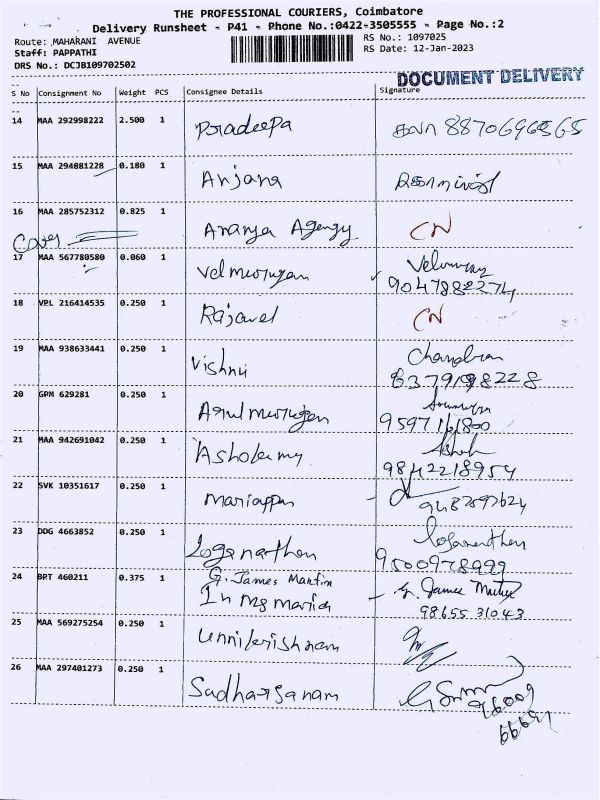 THE PROFESSIONAL COURIERS, Coimbatore
Delivery Runsheet - P41 - Phone No.:0422-3505555 - Page No.:2
Route: MAHARANI AVENUE RS No.: 1097025
Staff: PAPPATHI RS Date: 12-Jan-2023
DRS No.: DCJB109702502
DOCUMENT DELIVERY
S No Consignment No Weight PCS Consignee Details Signature
14 MAA 292998222 2.500 1 Pradeepa
15 MAA 294881228 0.180 1 Anjana
16 MAA 285752312 0.825 1 Ananya Agengy CN
Cover
17 MAA 567780580 0.060 1 Velmurugan
9047882274
18 VPL 216414535 0.250 1 Rajavel CN
19 MAA 938633441 0.250 1 Vishnu Chandran
8379198228
20 GPM 629281 0.250 1 Arulmurugan
9597161800
21 MAA 942691042 0.250 1 Ashok Ashok
9842218954
22 SVK 10351617 0.250 1 Mariappan
23 DDG 4663852 0.250 1 Loganathan Loganathan
9500978999
24 BPT 460211 0.375 1 G. James Martin G. James
98655 31043
25 MAA 569275254 0.250 1 Unnikrishnan
26 MAA 297401273 0.250 1 Sudharsanam
96009
66691